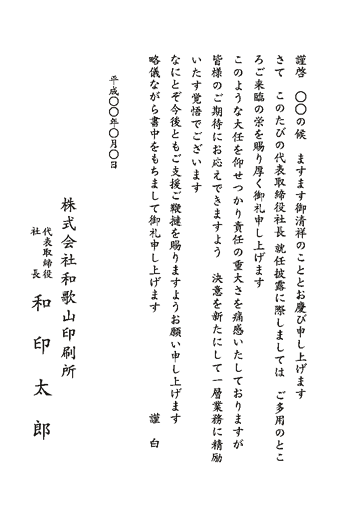 謹啓　〇〇の候　ますます御清祥のこととお慶び申し上げます
さて　このたびの代表取締役社長 就任披露に際しましては　ご多用のとこ
ろご来臨の栄を賜り厚く御礼申し上げます
このような大任を仰せつかり責任の重大さを痛感いたしておりますが
皆様のご期待にお応えできますよう　決意を新たにして一層業務に精励
いたす覚悟でございます
なにとぞ今後ともご支援ご鞭撻を賜りますようお願い申し上げます
略儀ながら書中をもちまして御礼申し上げます　　　　謹　白
平成〇〇年〇月〇日
株式会社和歌山印刷所
代表取締役
社長
和印太郎